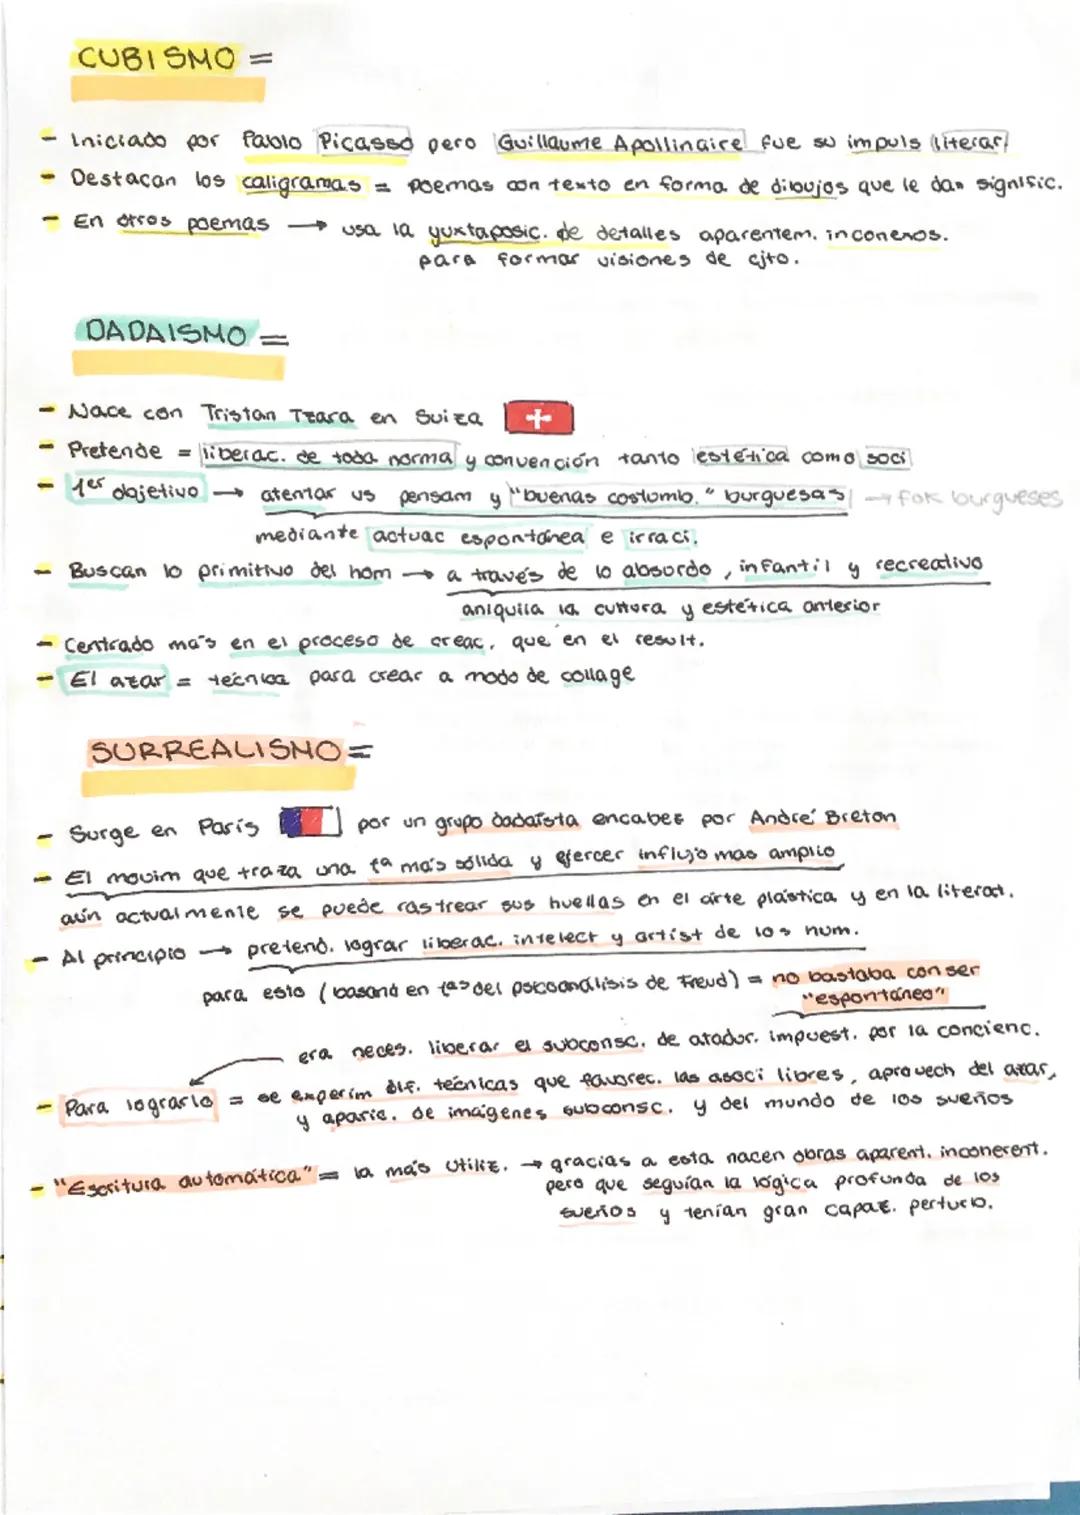 CUBISMO =
- Iniciado por Pablo Picasso pero Guillaume Apollinaire fue su impuls literar
- Destacan los caligramas = poemas con texto en forma de dibujos que le dan signific.
- En otros poemas → usa la yuxtaposic. de detalles aparentem. inconexos.
para formar visiones de cjto.
DADAISMO =
- Nace con Tristan Tzara en Suiza
- Pretende = liberac. de toda norma y convención tanto estética como soci
- 1er objetivo → atentar vs pensam y "buenas costumb." burguesas → fok burgueses
mediante actuac espontánea e irraci.
- Buscan lo primitivo del hom → a través de lo absurdo, infantil y recreativo
aniquila la cultura y estética anterior
- Centrado más en el proceso de creac. que en el result.
- El azar = técnica para crear a modo de collage
SURREALISMO =
- Surge en París por un grupo dadaísta encabez por André Breton
- El movim que traza una tª más sólida y ejercer influjo mas amplio
aún actualmente se puede rastrear sus huellas en el arte plástica y en la literat.
- Al principio → pretend. lograr liberac. intelect y artist de los hum.
para esto (basand en tas del psicoanálisis de Freud) = no bastaba con ser
"espontáneo"
era neces. liberar el subconsc. de atadur. impuest. por la concienc.
- Para lograrlo = se experim dif. técnicas que favorec. las asoci libres, aprovech del azar,
y aparic. de imágenes subconsc. y del mundo de los sueños
- "Escritura automática" = la más utiliz. → gracias a esta nacen obras aparent. incoherent.
pero que seguían la lógica profunda de los
sueños y tenían gran capaz. perturb.